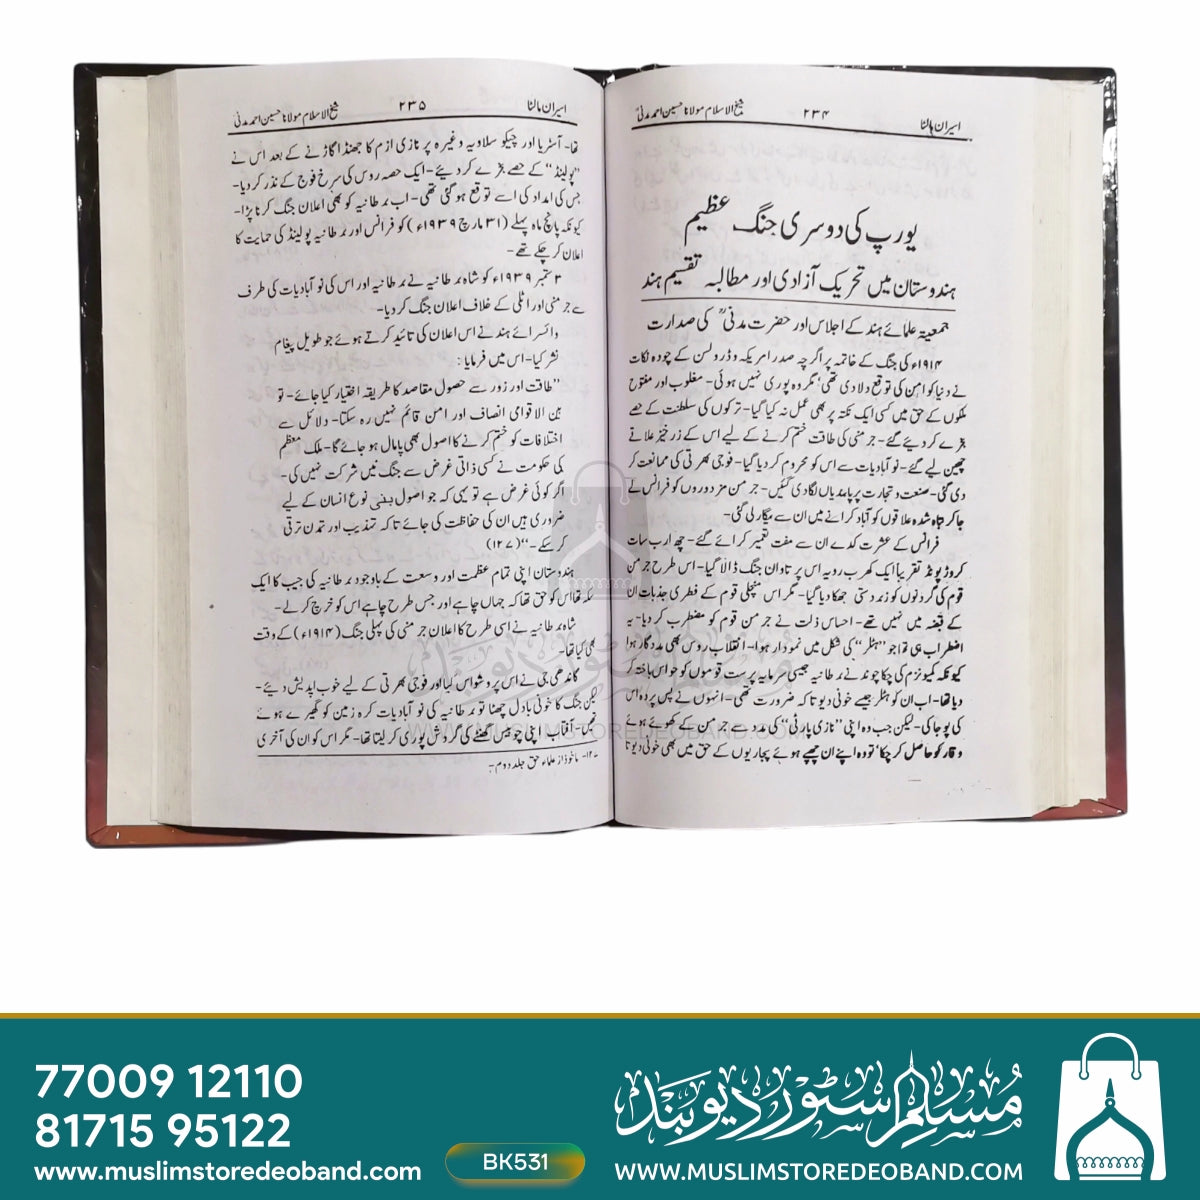 اسیران مالٹا ۲۳۴ شیخ الاسلام مولانا حسین احمد مدنیؒ
یورپ کی دوسری جنگ عظیم
ہندوستان میں تحریک آزادی اور مطالبہ تقسیم ہند
جمعیۃ علمائے ہند کے اجلاس اور حضرت مدنیؒ کی صدارت
۱۹۱۴ء کی جنگ کے خاتمہ پر اگرچہ صدر امریکہ وڈرولسن کے چودہ نکات
نے دنیا کو امن کی توقع دلا دی تھی‘ مگر وہ پوری نہیں ہوئی۔ مغلوب اور مفتوح
ملکوں کے حق میں کسی ایک نکتہ پر بھی عمل نہ کیا گیا۔ ترکوں کی سلطنت کے حصے
بخرے کر دیئے گئے۔ جرمنی کی طاقت ختم کرنے کے لیے اس کے زرخیز علاقے
چھین لیے گئے۔ نو آبادیات سے اس کو محروم کر دیا گیا۔ فوجی بھرتی کی ممانعت کر
دی گئی۔ صنعت و تجارت پر پابندیاں لگا دی گئیں۔ جرمن مزدوروں کو فرانس لے
جا کر تباہ شدہ علاقوں کو آباد کرانے میں ان سے بیگار لی گئی۔
فرانس کے عشرت کدے ان سے مفت تعمیر کرائے گئے۔ چھ ارب سات
کروڑ پونڈ تقریباً ایک کھرب روپیہ اس پر تاوان جنگ ڈالا گیا۔ اس طرح جرمن
قوم کی گردنوں کو زبردستی جھکا دیا گیا۔ مگر اس منچلی قوم کے فطری جذبات ان
کے قبضہ میں نہیں تھے۔ احساس ذلت نے جرمن قوم کو مضطرب کر دیا۔ یہ
اضطراب ہی تھا جو ”ہٹلر“ کی شکل میں نمودار ہوا۔ انقلاب روس بھی مددگار ہوا
کیونکہ کمیونزم کی چکا چوند نے برطانیہ جیسی سرمایہ پرست قوموں کو حواس باختہ کر
دیا تھا۔ اب ان کو ہٹلر جیسے خونی دیوتا کہ ضرورت تھی۔ انہوں نے پس پردہ اس
کی پوجا کی۔ لیکن جب وہ اپنی ”نازی پارٹی“ کی مدد سے جرمن کے کھوئے ہوئے
وقار کو حاصل کر چکا‘ تو وہ اپنے ان چھپے ہوئے پجاریوں کے حق میں بھی خونی دیوتا
اسیران مالٹا ۲۳۵ شیخ الاسلام مولانا حسین احمد مدنیؒ
تھا۔ آسٹریا اور چیکو سلاویہ وغیرہ پر نازی ازم کا جھنڈا گاڑنے کے بعد اس نے
”پولینڈ“ کے حصے بخرے کر دیئے۔ ایک حصہ روس کی سرخ فوج کے نذر کر دیا۔
جس کی امداد کی اسے توقع ہو گئی تھی۔ اب برطانیہ کو بھی اعلان جنگ کرنا پڑا۔
کیونکہ پانچ ماہ پہلے (۳۱ مارچ ۱۹۳۹ء) کو فرانس اور برطانیہ پولینڈ کی حمایت کا
اعلان کر چکے تھے۔
۳ ستمبر ۱۹۳۹ء کو شاہ برطانیہ نے برطانیہ اور اس کی نو آبادیات کی طرف
سے جرمنی اور اٹلی کے خلاف اعلان جنگ کر دیا۔
وائسرائے ہند نے اس اعلان کی تائید کرتے ہوئے جو طویل پیغام
نشر کیا۔ اس میں فرمایا:
”طاقت اور زور سے حصول مقاصد کا طریقہ اختیار کیا جائے۔ تو
بین الاقوامی انصاف اور امن قائم نہیں رہ سکتا۔ دلائل سے
اختلافات کو ختم کرنے کا اصول بھی پامال ہو جائے گا۔ ملک معظم
کی حکومت نے کسی ذاتی غرض سے جنگ میں شرکت نہیں کی۔
اگر کوئی غرض ہے تو یہی کہ جو اصول بنی نوع انسان کے لیے
ضروری ہیں ان کی حفاظت کی جائے تاکہ تہذیب اور تمدن ترقی
کر سکے۔“ (۱۲۷)
ہندوستان اپنی تمام عظمت اور وسعت کے باوجود برطانیہ کی جیب کا ایک
سکہ تھا اس کو حق تھا کہ جہاں چاہے اور جس طرح چاہے اس کو خرچ کر لے۔
شاہ برطانیہ نے اسی طرح کا اعلان جرمنی کی پہلی جنگ (۱۹۱۴ء) کے وقت
بھی کیا تھا۔
گاندھی جی نے اس پر وشواس کیا اور فوجی بھرتی کے لیے خوب اپدیش دیئے۔
لیکن جنگ کا خونی بادل چھٹا تو برطانیہ کی نو آبادیات کرہ زمین کو گھیرے ہوئے
تھیں۔ آفتاب اپنی چوبیس گھنٹے کی گردش پوری کر لیتا تھا۔ مگر اس کو ان کی آخری
۱۲۷۔ ماخوذ از علماء حق جلد دوم۔
مسلم سٹور دیوبند
WWW.MUSLIMSTOREDEOBAND.COM
77009 12110
81715 95122
www.muslimstoredeoband.com
BK531
مسلم سٹور دیوبند
WWW.MUSLIMSTOREDEOBAND.COM